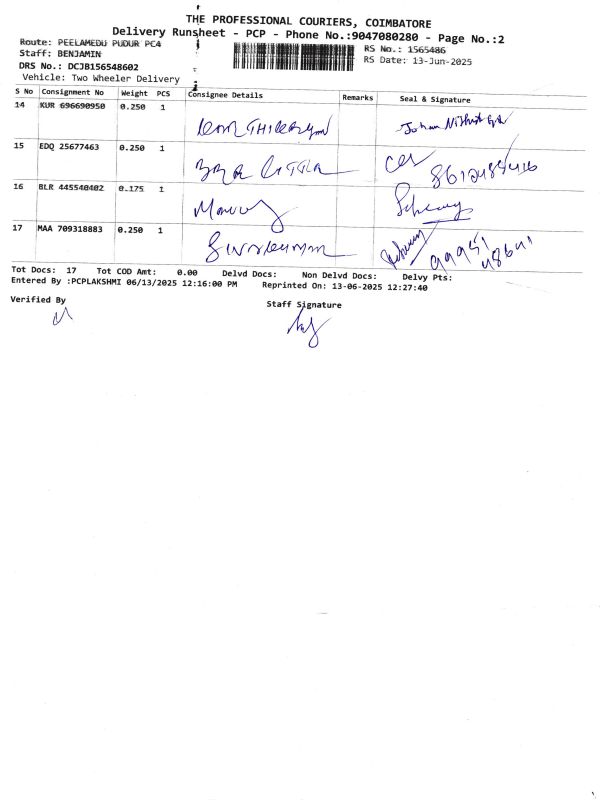 THE PROFESSIONAL COURIERS, COIMBATORE
Delivery Runsheet - PCP - Phone No.:9047080280 - Page No.:2
Route: PEELAMEDU PUDUR PC4
RS No.: 1565486
Staff: BENJAMIN
RS Date: 13-Jun-2025
DRS No.: DCJB156548602
Vehicle: Two Wheeler Delivery
S No Consignment No Weight PCS Consignee Details Remarks Seal & Signature
14 KUR 696690950 0.250 1
15 EDQ 25677463 0.250 1
16 BLR 445540402 0.175 1
17 MAA 709318883 0.250 1
Tot Docs: 17 Tot COD Amt: 0.00 Delvd Docs: Non Delvd Docs: Delvy Pts:
Entered By :PCPLAKSHMI 06/13/2025 12:16:00 PM Reprinted On: 13-06-2025 12:27:40
Verified By
Staff Signature